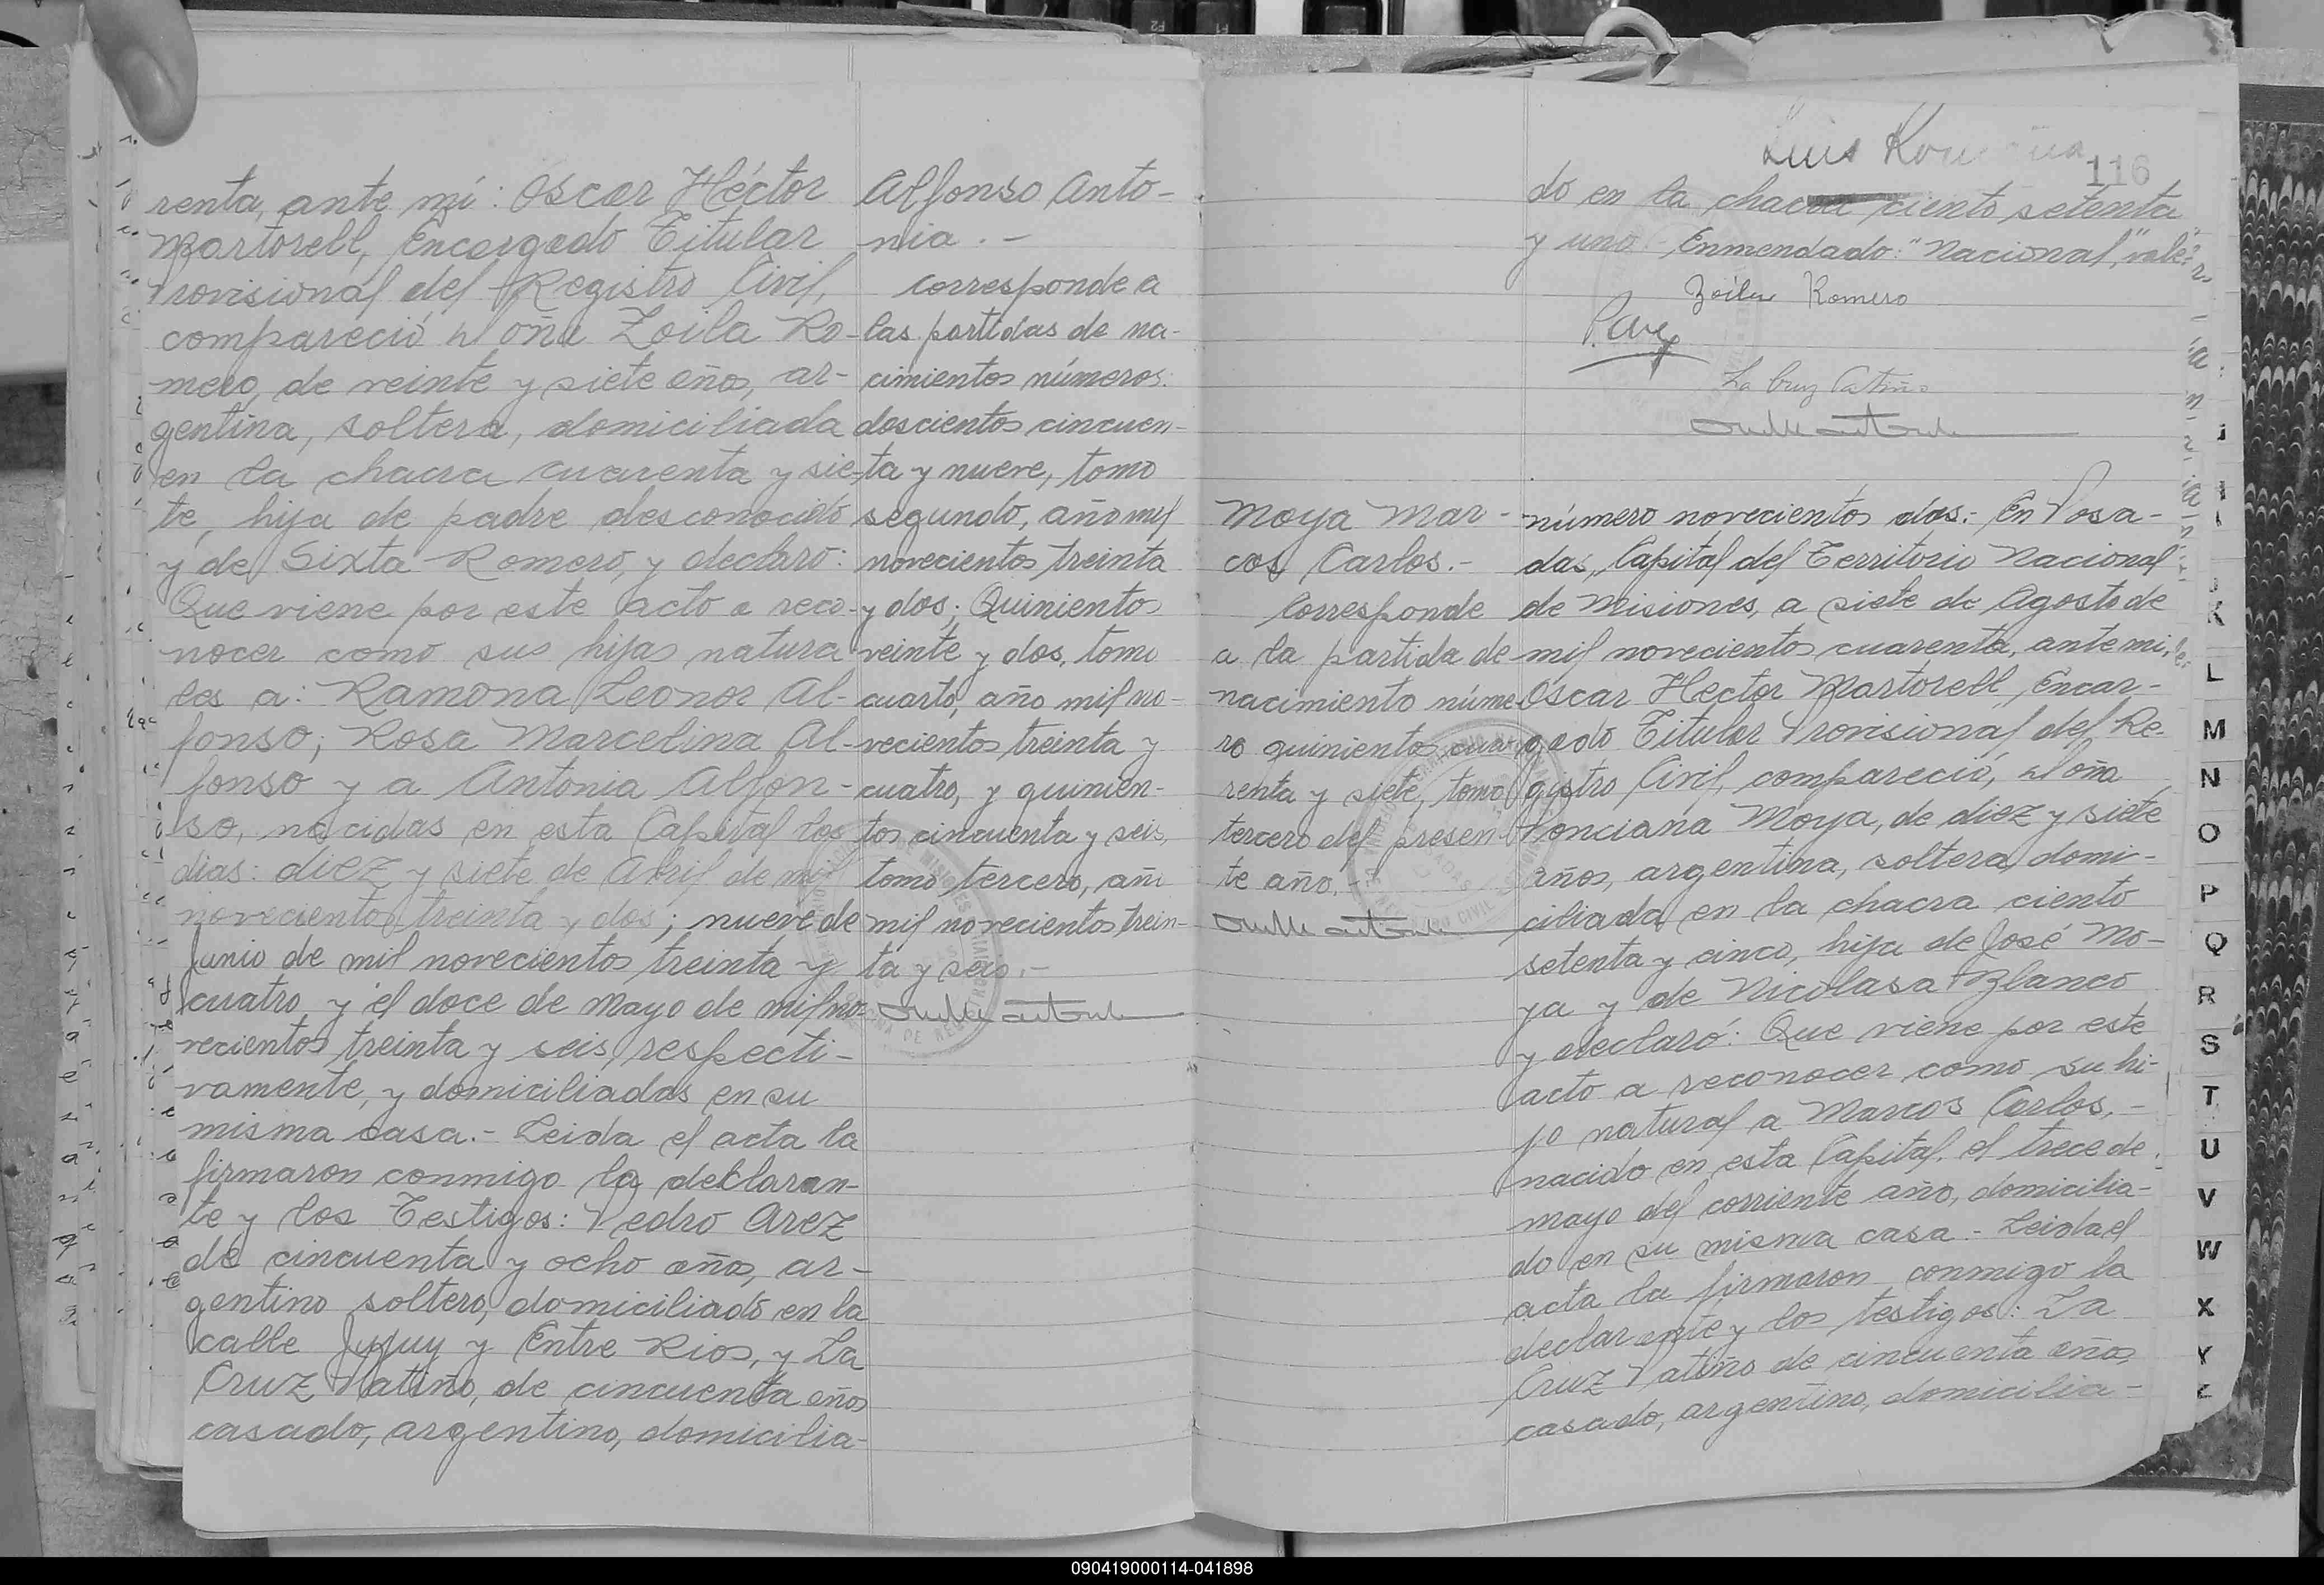 renta, ante mí: Oscar Héctor
Martorell, Encargado Titular
Provisional del Registro Civil,
compareció Doña Zoila Ro-
mero, de veinte y siete años, ar-
gentina, soltera, domiciliada
en la chacra cuarenta y sie-
te, hija de padre desconocido
y de Sixta Romero, y declaro:
Que viene por este acto a reco-
nocer como sus hijas natura
les a: Ramona Leonor Al-
fonso; Rosa Marcelina Al-
fonso y a Antonia Alfon-
so, nacidas en esta Capital los
dias: diez y siete de Abril de mil
novecientos treinta y dos; nueve de
Junio de mil novecientos treinta y
cuatro y el doce de Mayo de mil no-
vecientos treinta y seis, respecti-
vamente, y domiciliadas en su
misma casa.- Leida el acta la
firmaron conmigo la declaran-
te y los Testigos: Pedro Arez
de cincuenta y ocho años, ar-
gentino soltero, domiciliado en la
calle Jujuy y Entre Rios, y La
Cruz Patiño, de cincuenta años
casado, argentino, domicilia-
Alfonso Anto-
nia.-
Corresponde a
las partidas de na-
cimientos números:
doscientos cincuen-
ta y nueve, tomo
segundo, año mil
novecientos treinta
y dos; Quinientos
veinte y dos, tomo
cuarto, año mil no-
vecientos treinta y
cuatro, y quinien-
tos cincuenta y seis,
tomo tercero, año
mil novecientos trein-
ta y seis.-
Luis
116
do en la chacra ciento setenta
y uno.- Enmendado: "Nacional", vale.
Zoila Romero
P. Arez
La Cruz Patiño
Moya Mar-
cos Carlos.-
Corresponde
a la partida de
nacimiento núme-
ro quinientos cua-
renta y siete, tomo
tercero del presen-
te año.-
número novecientos dos:- En Posa-
das, Capital del Territorio Nacional
de Misiones, a siete de Agosto de
mil novecientos cuarenta, ante mi,
Oscar Hector Martorell, Encar-
gado Titular Provisional del Re-
gistro Civil, compareció, Doña
Ponciana Moya, de diez y siete
años, argentina, soltera, domi-
ciliada en la chacra ciento
setenta y cinco, hija de José Mo-
ya y de Nicolasa Blanco
y declaró: Que viene por este
acto a reconocer como su hi-
jo natural a Marcos Carlos,-
nacido en esta Capital, el trece de
mayo del corriente año, domicilia-
do en su misma casa.- Leida el
acta la firmaron conmigo la
declarante y los testigos: La
Cruz Patiño de cincuenta años,
casado, argentino, domicilia-
K
L
M
N
O
P
Q
R
S
T
U
V
W
X
Y
Z
090419000114-041898